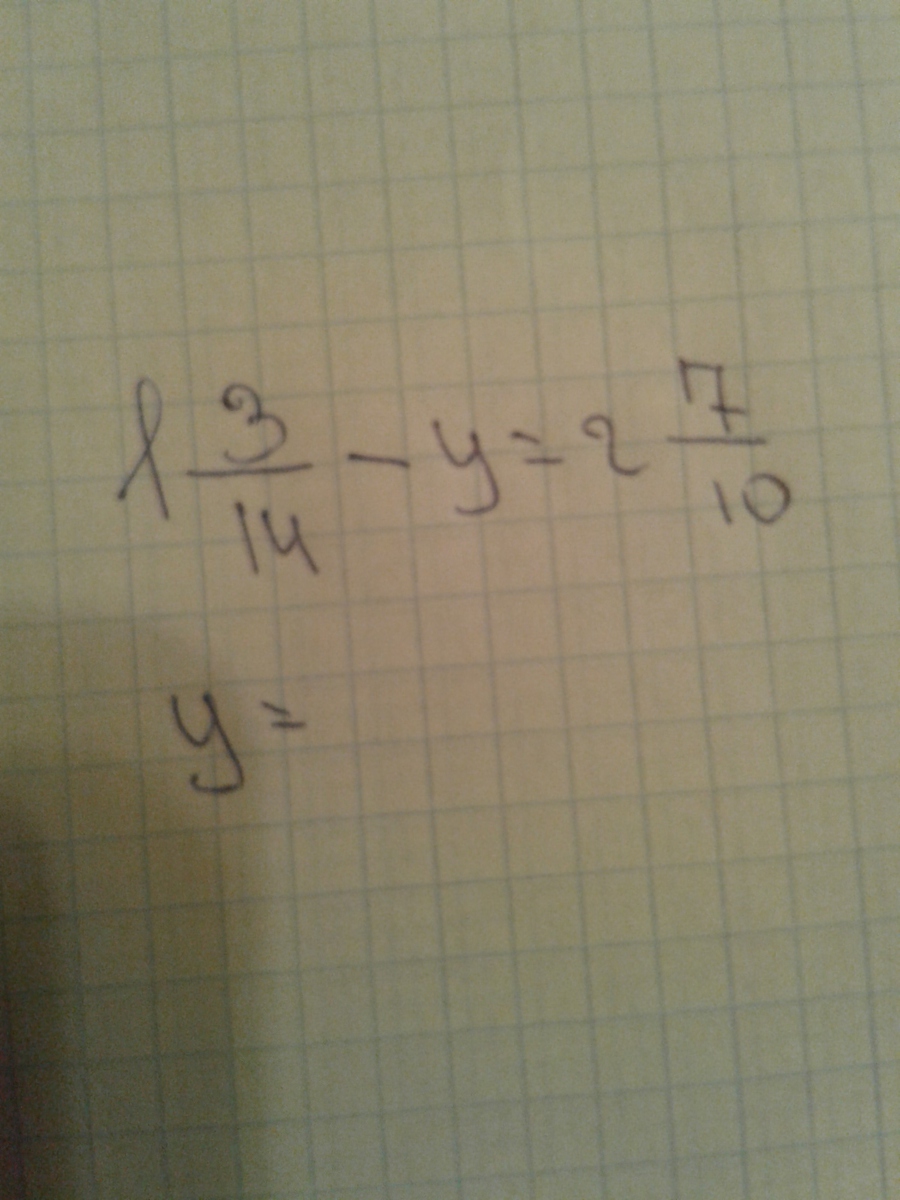 1 3/14 - y = 2 7/10
y =